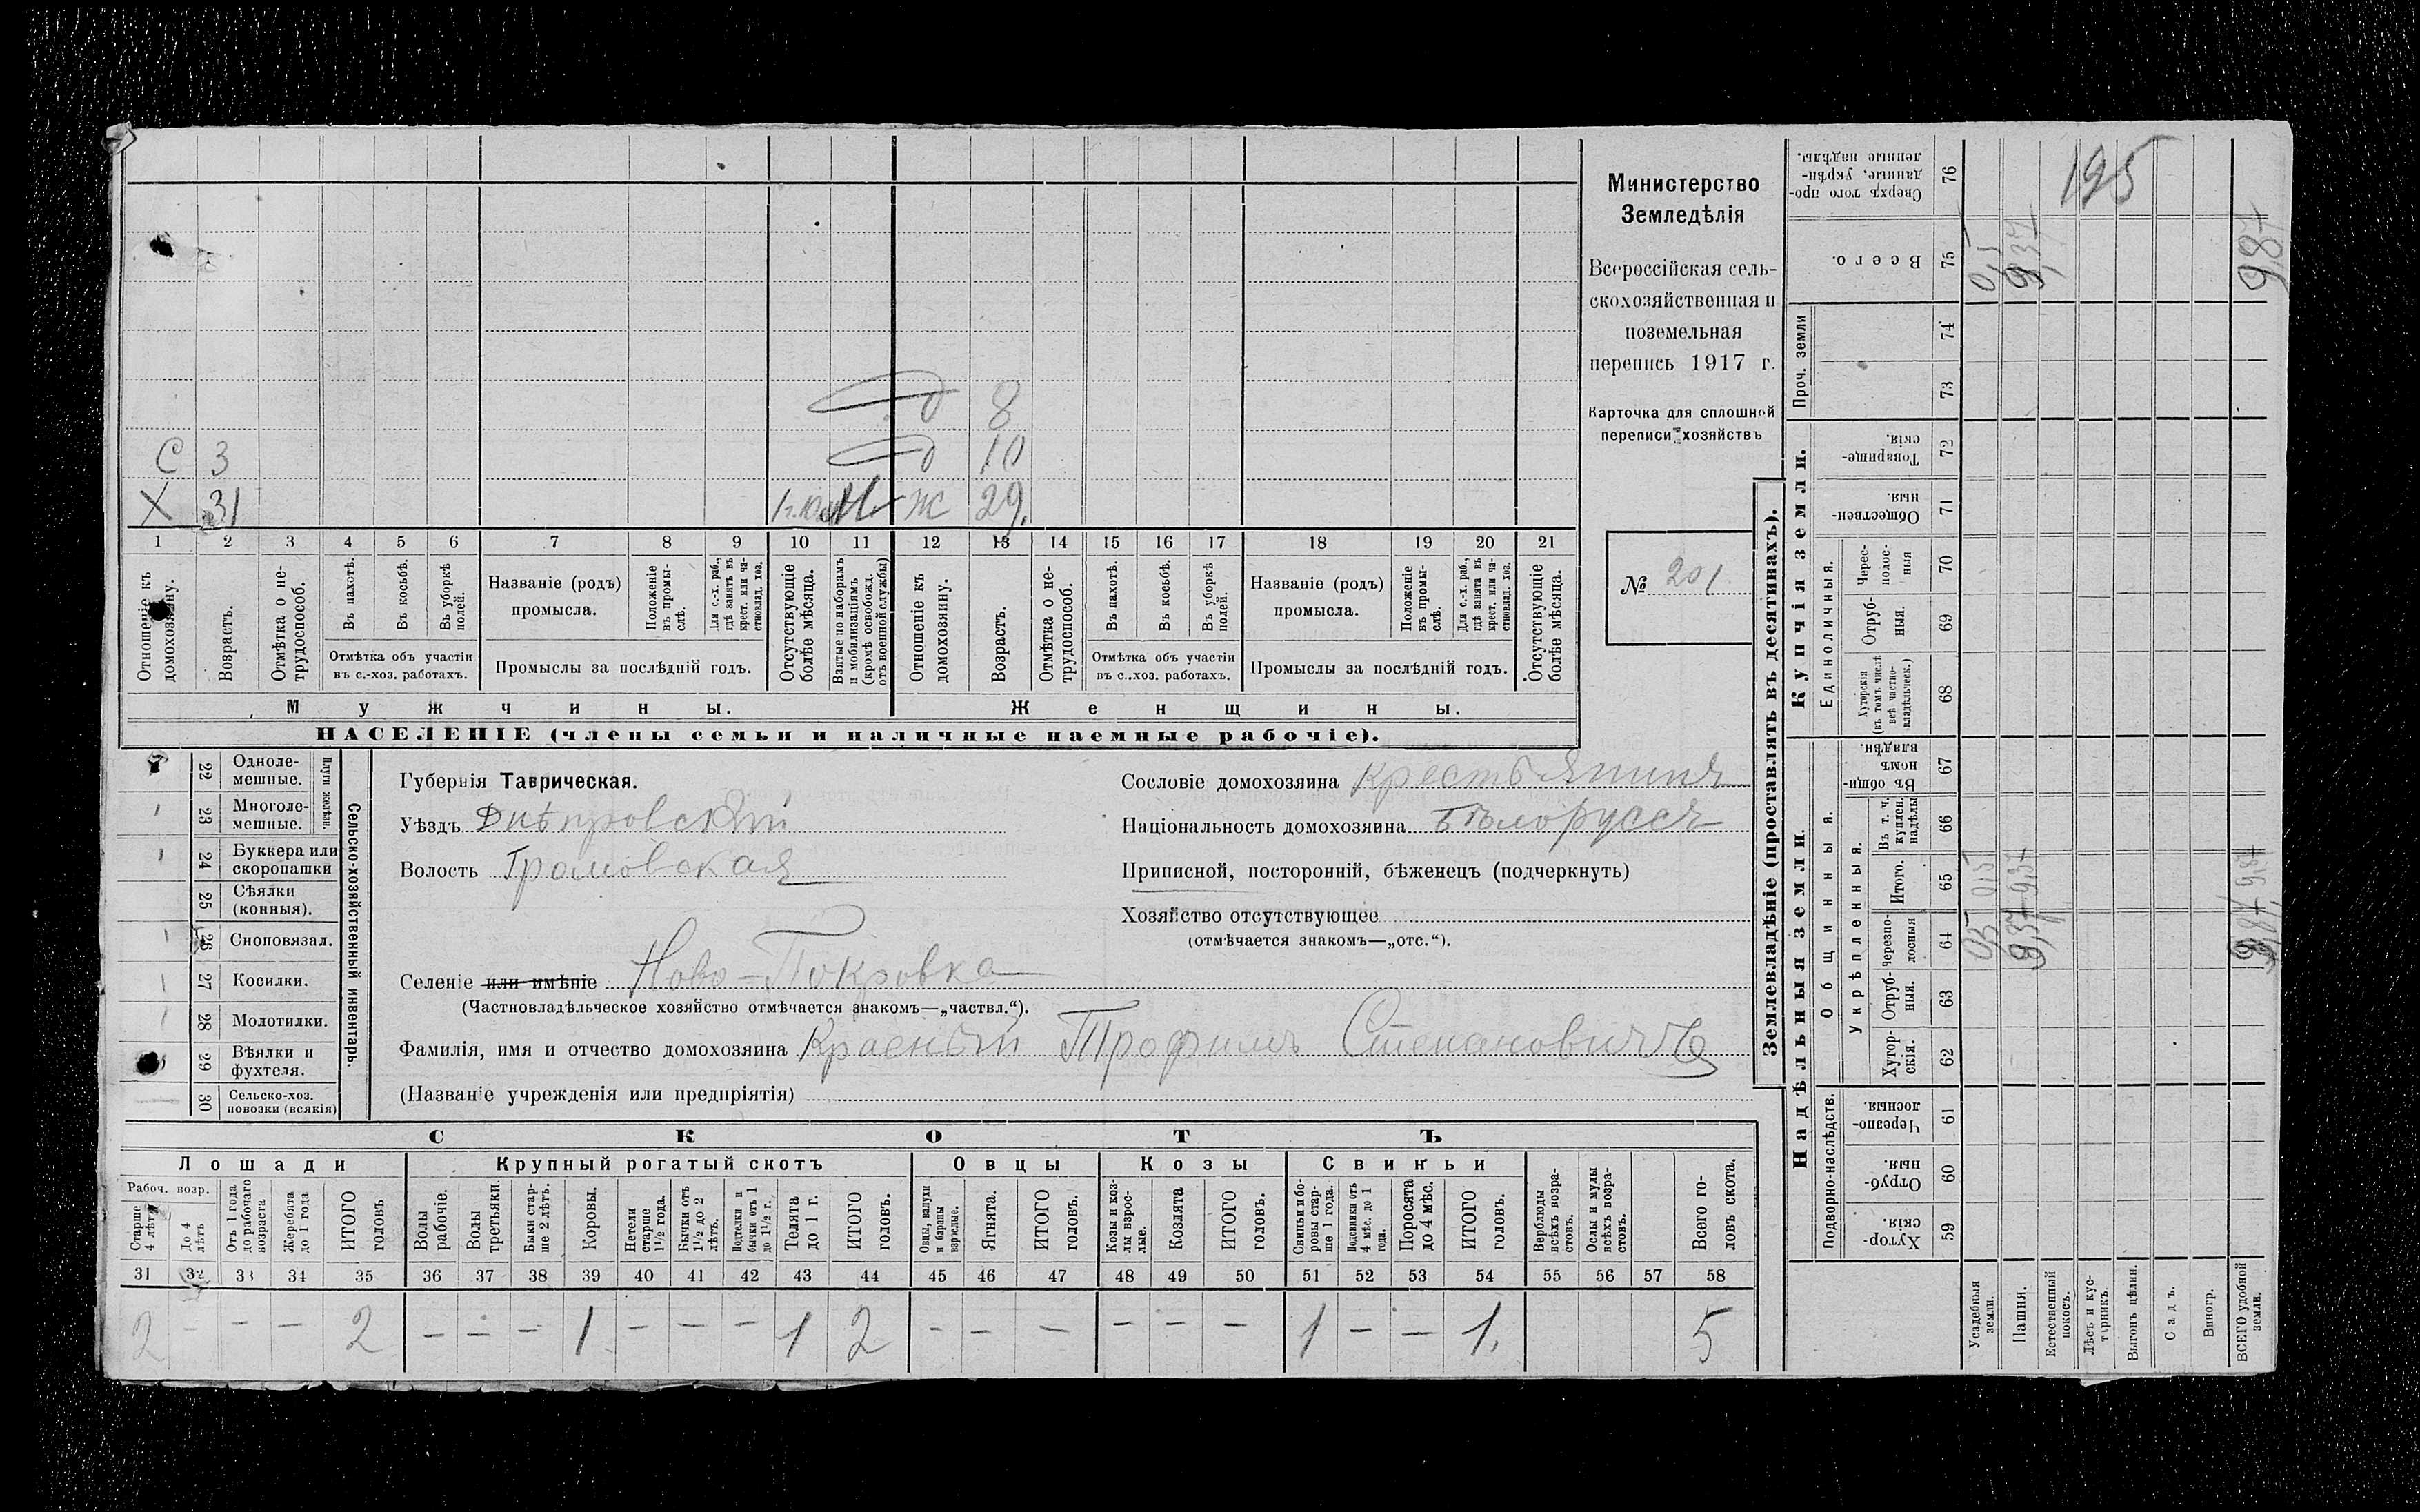 Министерство
Земледѣлія
Всероссійская сель-
скохозяйственная и
поземельная
перепись 1917 г.
Карточка для сплошной
переписи хозяйствъ
№ 201
С 3
Х 31
8
10
Ж 29
1 2 3 4 5 6 7 8 9 10 11 12 13 14 15 16 17 18 19 20 21
Отношеніе къ домохозяину.
Возрастъ.
Отмѣтка о не-трудоспособ.
Въ пахотѣ.
Въ косьбѣ.
Въ уборкѣ полей.
Отмѣтка объ участіи
въ с.-хоз. работахъ.
Названіе (родъ)
промысла.
Положеніе въ промы-слѣ.
Для с.-х. раб., гдѣ занятъ въ крест. или ча-стновлад. хоз.
Промыслы за послѣдній годъ.
Отсутствующіе болѣе мѣсяца.
Взятые по наборамъ и мобилизаціямъ (кромѣ освобожд. отъ военной службы)
Отношеніе къ домохозяину.
Возрастъ.
Отмѣтка о не-трудоспособ.
Въ пахотѣ.
Въ косьбѣ.
Въ уборкѣ полей.
Отмѣтка объ участіи
въ с..хоз. работахъ.
Названіе (родъ)
промысла.
Положеніе въ промы-слѣ.
Для с.-х. раб., гдѣ занятъ въ крест. или ча-стновлад. хоз.
Промыслы за послѣдній годъ.
Отсутствующіе болѣе мѣсяца.
Мужчины. Женщины.
НАСЕЛЕНІЕ (члены семьи и наличные наемные рабочіе).
22 Одноле-мешные.
23 Многоле-мешные.
Плуги желѣзн.
24 Буккера или скоропашки
25 Сѣялки (конныя).
26 Сноповязал.
27 Косилки.
28 Молотилки.
29 Вѣялки и фухтеля.
30 Сельско-хоз. повозки (всякія)
Сельско-хозяйственный инвентарь.
Губернія Таврическая.
Уѣздъ Днѣпровскій
Волость Громовская
Селеніе или имѣніе Ново-Покровка
(Частновладѣльческое хозяйство отмѣчается знакомъ—„частвл.“).
Фамилія, имя и отчество домохозяина Красный Трофимъ Степановичъ
(Названіе учрежденія или предпріятія)
Сословіе домохозяина крестьянинъ
Національность домохозяина бѣлоруссъ
Приписной, посторонній, бѣженецъ (подчеркнуть)
Хозяйство отсутствующее
(отмѣчается знакомъ—„отс.“).
СКОТЪ
Лошади
Крупный рогатый скотъ
Овцы
Козы
Свиньи
Рабоч. возр.
Старше 4 лѣтъ
До 4 лѣтъ
Отъ 1 года до рабочаго возраста
Жеребята до 1 года
ИТОГО головъ
Волы рабочіе.
Волы третьяки.
Быки стар-ше 2 лѣтъ.
Коровы.
Нетели старше 1½ года.
Бычки отъ 1½ до 2 лѣтъ.
Подтелки и бычки отъ 1 до 1½ г.
Телята до 1 г.
ИТОГО головъ.
Овцы, валухи и бараны взрослые.
Ягнята.
ИТОГО головъ.
Козы и коз-лы взрос-лые.
Козлята
ИТОГО головъ.
Свиньи и бо-ровы стар-ше 1 года.
Подсвинки отъ 4 мѣс. до 1 года.
Поросята до 4 мѣс.
ИТОГО головъ.
Верблюды всѣхъ возра-стовъ.
Ослы и мулы всѣхъ возра-стовъ.
Всего го-ловъ скота.
31 32 33 34 35 36 37 38 39 40 41 42 43 44 45 46 47 48 49 50 51 52 53 54 55 56 57 58
2 — — — 2 — — — 1 — — — 1 2 — — — — — — 1 — — 1. 5
Землевладѣніе (проставлять въ десятинахъ).
Надѣльныя земли.
Купчія земли.
Проч. земли
Подворно-наслѣдств.
Общинныя.
Укрѣпленныя.
Единоличныя.
Хутор-скія. 59
Отруб-ныя. 60
Черезпо-лосныя. 61
Хутор-скія. 62
Отруб-ныя. 63
Черезпо-лосныя 64
Итого. 65
Въ т. ч. куплен. надѣлы 66
Въ общин-номъ владѣн. 67
Хуторскія (въ томъ числѣ всѣ частно-владѣльческ.) 68
Отруб-ныя. 69
Черес-полос-ныя 70
Обществен-ныя. 71
Товарище-скія. 72
73
74
Всего. 75
Сверхъ того про-данные, укрѣп-ленные надѣлы. 76
Усадебныя земли. 0,5 0,5 0,5
Пашня. 9,37 9,37 9,37
Естественный покосъ.
Лѣсъ и кус-тарникъ.
Выгонъ цѣлин.
Садъ.
Виногр.
ВСЕГО удобной земли. 9,87
195